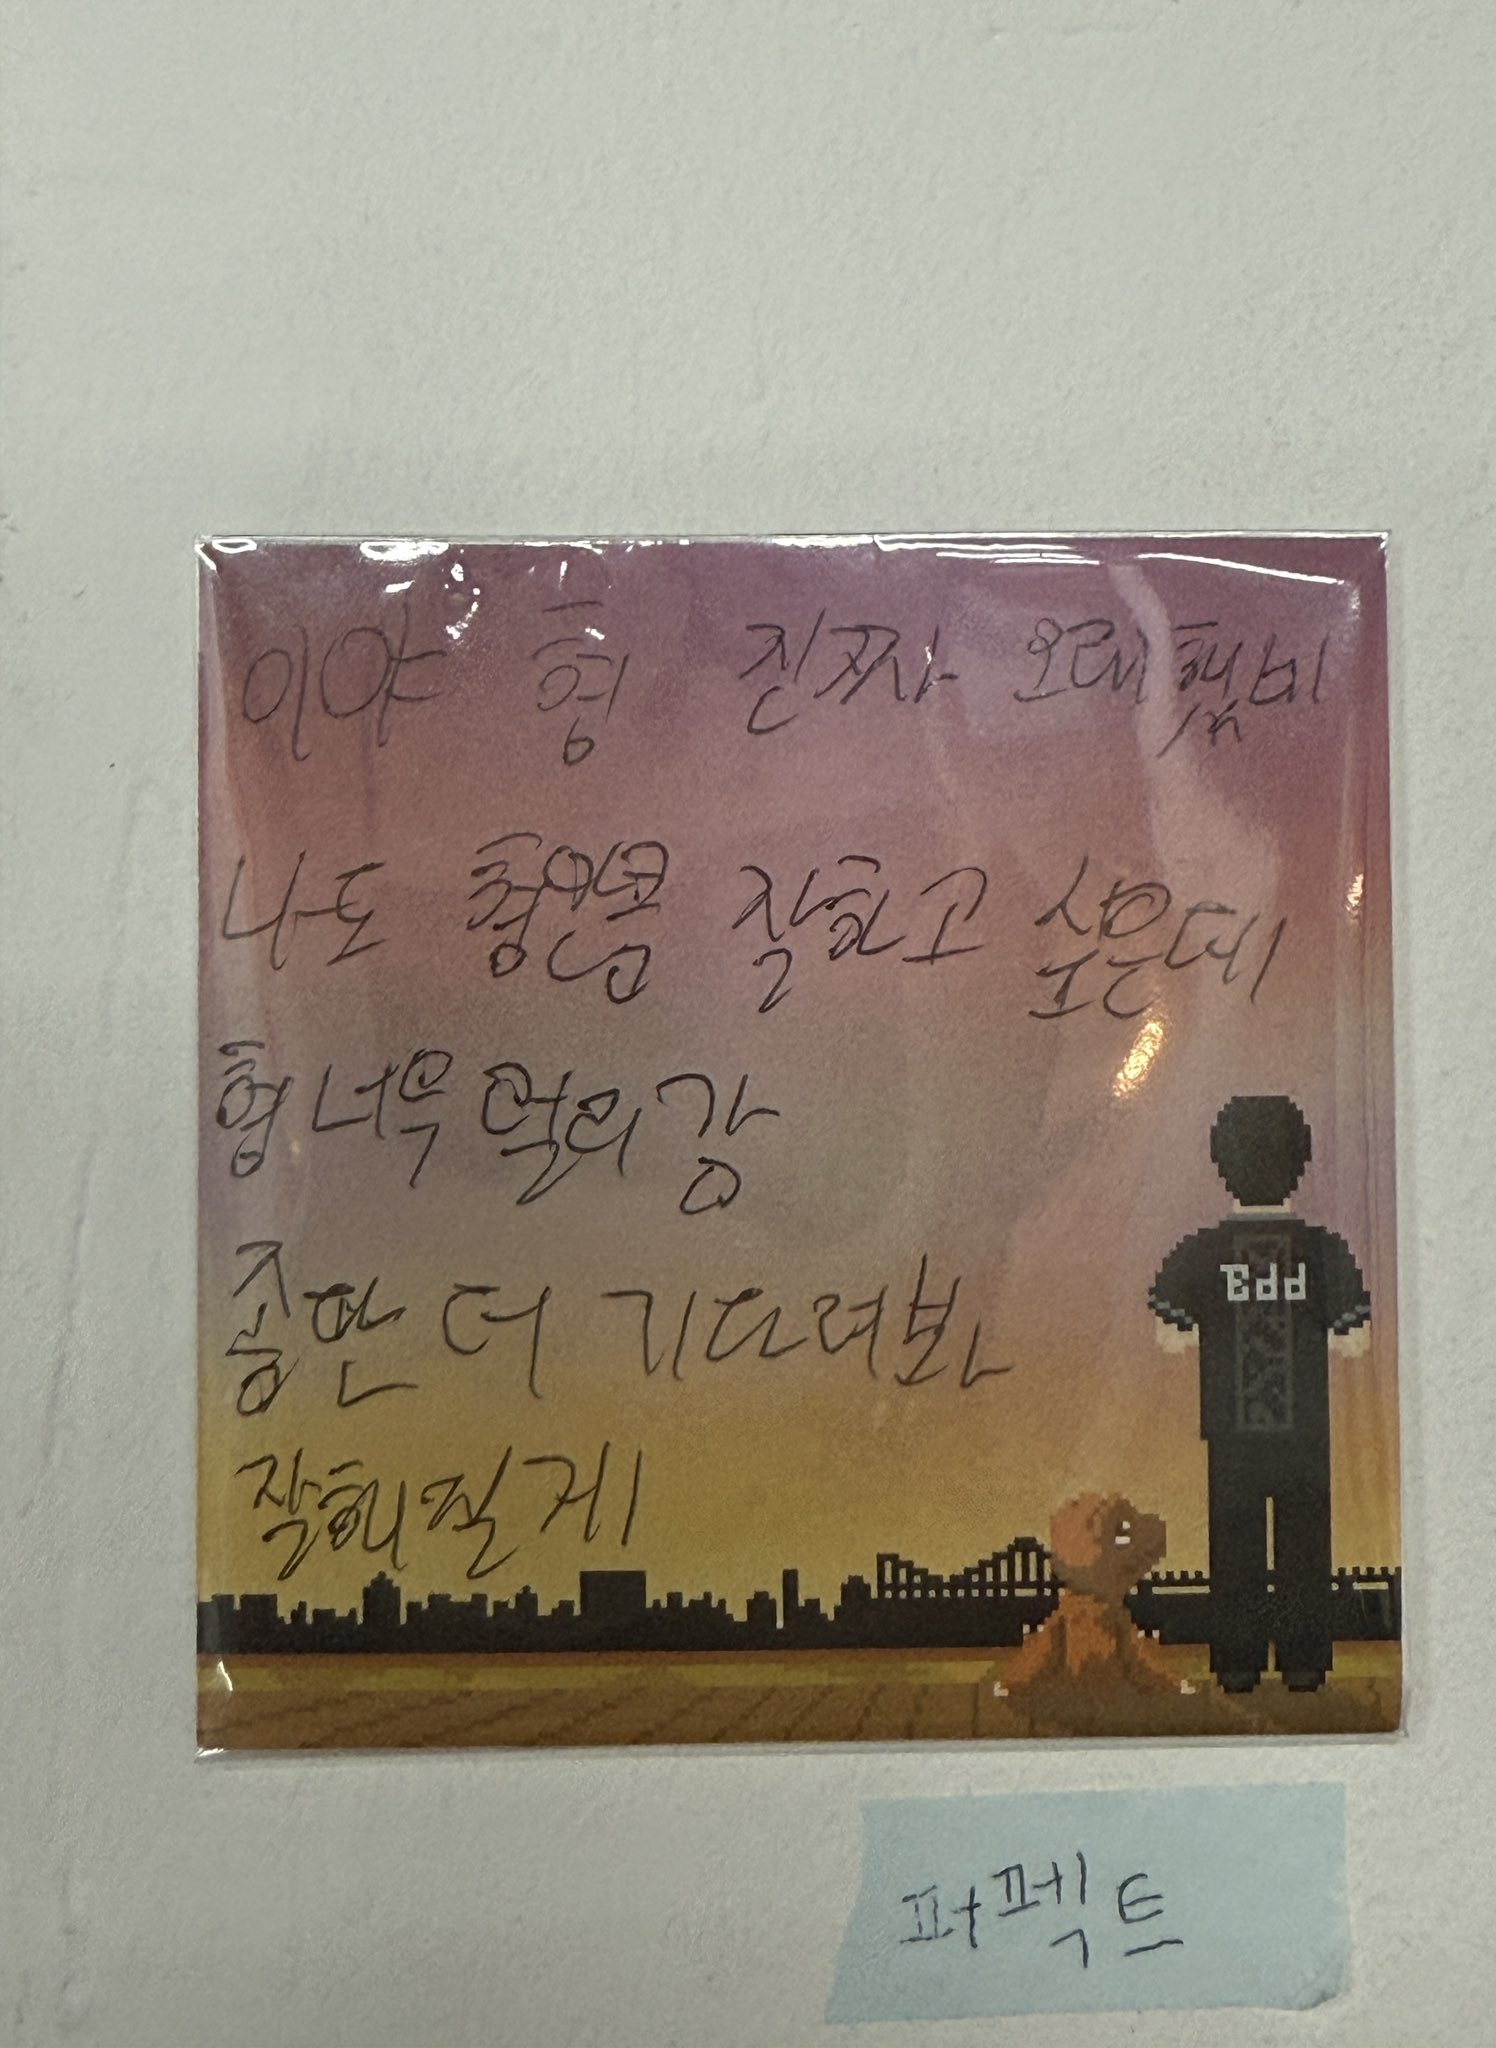 이야 형 진짜 오래했네
나도 형만큼 잘하고 싶은데
형 너무 멀리 감
좀만 더 기다려봐
잘해질게
퍼펙트